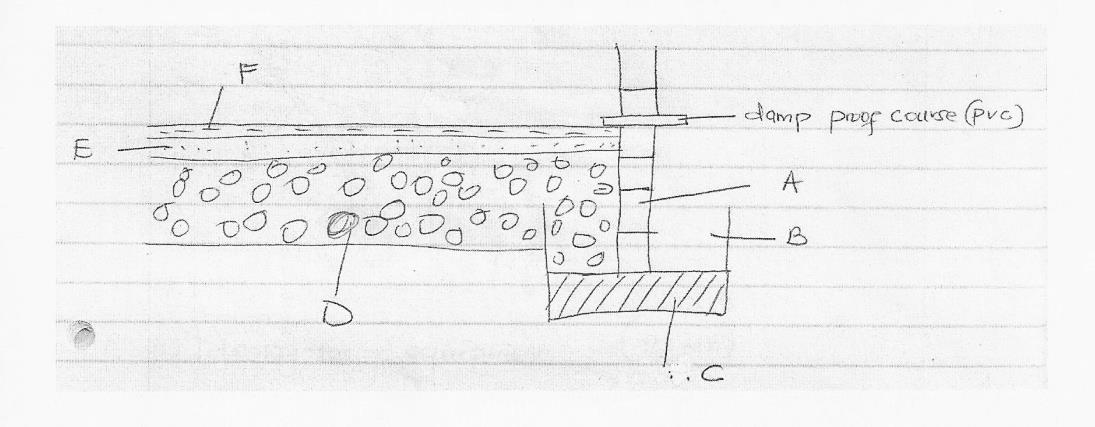 F
damp proof course (PVC)
E
A
B
D
C